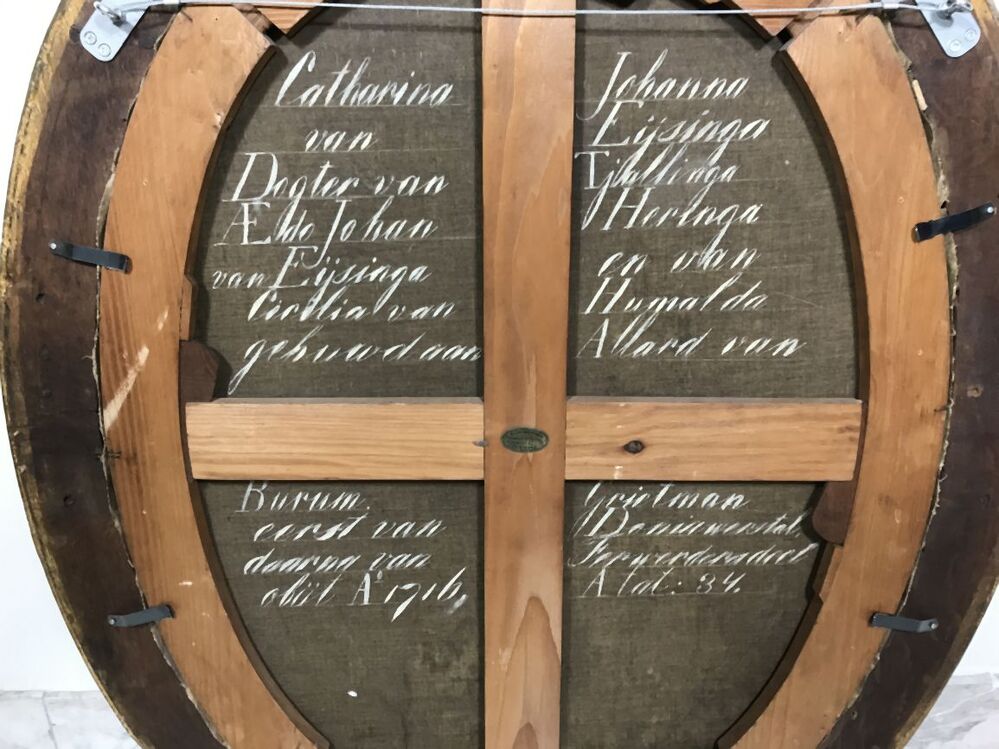 Catharina Johanna
van Eijsinga
Dogter van Tjallinga
Ældo Johan Heringa
van Eijsinga en van
Cicilia van Humalda
gehuwd aan Allard van
Burum Grietman
eerst van Doniawerstal,
daarna van Ferwerderadeel
obiit Aº 1716, Ætat: 34.